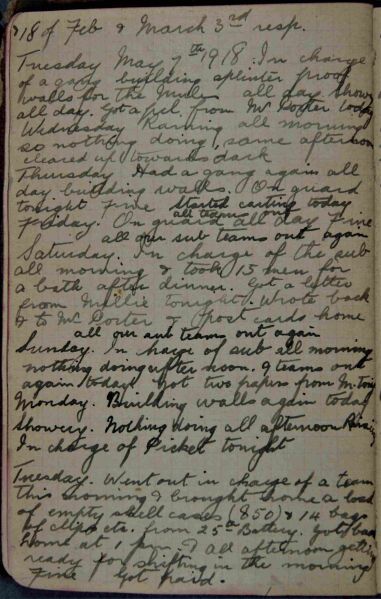 & 18 of Feb & March 3rd resp.
Tuesday May 7th 1918. In charge
of a gang building splinter proof
walls for the Mules all day. Showery
all day. Got a from Mr Coster today
Wednesday Raining all morning
so nothing doing, same afternoon
cleared up towards dark
Thursday Had a gang again all
day building walls. On guard
tonight Fine Started carting today
all teams out
Friday. On guard all day Fine
all our sub teams out again
Saturday. In charge of the sub
all morning & took 15 men for
a bath after dinner. Got a letter
from Millie tonight. Wrote back
& to Mr Coster & post cards home
all our sub teams out again
Sunday. In harge of sub all morning
nothing doing after noon. 9 teams out
again today. Got two papers from M.
Monday. Building walls again today
Showery. Nothing doing all afternoon
In charge of Picket tonight
Tuesday. Went out in charge of a team
this morning & brought home a load
of empty shell cases (850) & 14 bags
of clips etc. from 25th Battery. Got back
home at 1 pm. & all afternoon getting
ready for shifting in the morning
Fine Got paid.